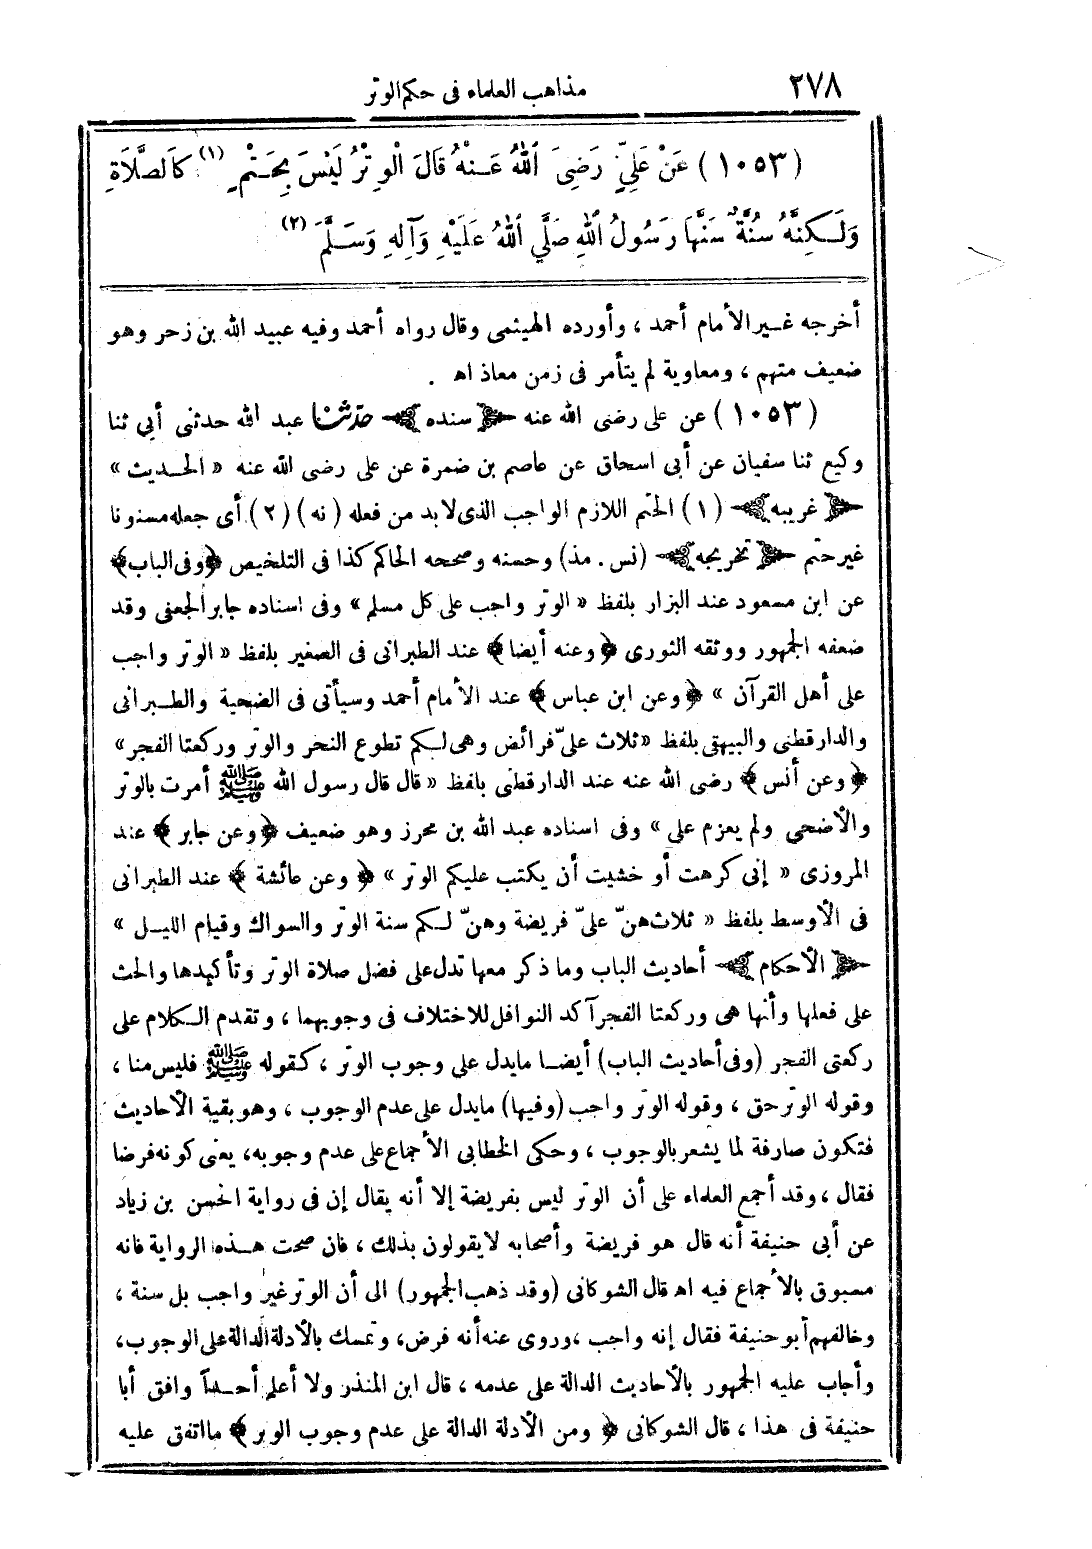 ٢٧٨
مذاهب العلماء فى حكم الوتر
(١٠٥٣) عَنْ عَلِيٍّ رَضِىَ ٱللهُ عَنْهُ قَالَ الْوِتْرُ لَيْسَ بِحَتْمٍ (١) كَالصَّلَاةِ
وَلَـكِنَّهُ سُنَّةٌ سَنَّهَا رَسُولُ ٱللهِ صَلَّي ٱللهُ عَلَيْهِ وَآلِهِ وَسَلَّمَ (٢)
أخرجه غير الأمام أحمد ، وأورده الهيثمى وقال رواه أحمد وفيه عبيد الله بن زحر وهو
ضعيف متهم ، ومعاوية لم يتأمر فى زمن معاذ اه .
(١٠٥٣) عن على رضى الله عنه ﴿سنده﴾ حدثنا عبد الله حدثنى أبي ثنا
وكيع ثنا سفيان عن أبى اسحاق عن عاصم بن ضمرة عن على رضى الله عنه « الحديث »
﴿غريبه﴾ (١) الحتم اللازم الواجب الذى لابد من فعله (نه) (٢) أى جعله مسنونا
غير حتم ﴿تخريجه﴾ (نس . مذ) وحسنه وصححه الحاكم كذا فى التلخيص ﴿وفى الباب﴾
عن ابن مسعود عند البزار بلفظ « الوتر واجب على كل مسلم » وفى اسناده جابر الجعفى وقد
ضعفه الجمهور ووثقه الثورى ﴿وعنه أيضا﴾ عند الطبرانى فى الصغير بلفظ « الوتر واجب
على أهل القرآن » ﴿وعن ابن عباس﴾ عند الأمام أحمد وسيأتى فى الضحية والطبرانى
والدارقطنى والبيهقى بلفظ « ثلاث علىّ فرائض وهى لكم تطوع النحر والوتر وركعتا الفجر »
﴿وعن أنس﴾ رضى الله عنه عند الدارقطنى بلفظ « قال قال رسول الله ﷺ أمرت بالوتر
والأضحى ولم يعزم على » وفى اسناده عبد الله بن محرز وهو ضعيف ﴿وعن جابر﴾ عند
المروزى « إنى كرهت أو خشيت أن يكتب عليكم الوتر » ﴿وعن عائشة﴾ عند الطبرانى
فى الأوسط بلفظ « ثلاث هنّ علىّ فريضة وهنّ لكم سنة الوتر والسواك وقيام الليل »
﴿الأحكام﴾ أحاديث الباب وما ذكر معها تدل على فضل صلاة الوتر وتأكيدها والحث
على فعلها وأنها هى وركعتا الفجر آكد النوافل للاختلاف فى وجوبهما ، وتقدم الكلام على
ركعتى الفجر (وفى أحاديث الباب) أيضا مايدل على وجوب الوتر ، كقوله ﷺ فليس منا ،
وقوله الوتر حق ، وقوله الوتر واجب (وفيها) مايدل على عدم الوجوب ، وهو بقية الأحاديث
فتكون صارفة لما يشعر بالوجوب ، وحكى الخطابى الأجماع على عدم وجوبه، يعنى كونه فرضا
فقال ، وقد أجمع العلماء على أن الوتر ليس بفريضة إلا أنه يقال إن فى رواية الحسن بن زياد
عن أبى حنيفة أنه قال هو فريضة وأصحابه لا يقولون بذلك ، فان صحت هذه الرواية فانه
مسبوق بالأجماع فيه اه قال الشوكانى (وقد ذهب الجمهور) الى أن الوتر غير واجب بل سنة ،
وخالفهم أبو حنيفة فقال إنه واجب ، وروى عنه أنه فرض، وتمسك بالأدلة الدالة على الوجوب،
وأجاب عليه الجمهور بالأحاديث الدالة على عدمه ، قال ابن المنذر ولا أعلم أحداً وافق أبا
حنيفة فى هذا ، قال الشوكانى ﴿ومن الأدلة الدالة على عدم وجوب الوتر﴾ ما اتفق عليه